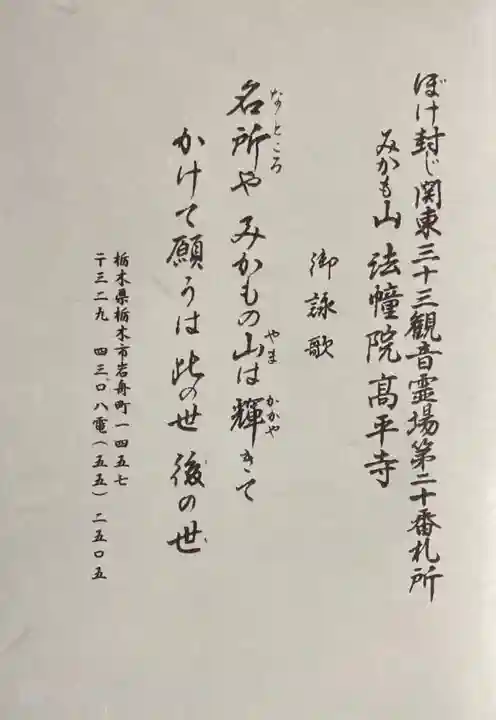 ぼけ封じ関東三十三観音霊場第二十番札所
みかも山 法幢院 高平寺
御詠歌
名所や みかもの山は 輝きて
なところ
やま
かがや
かけて願うは 此の世 後の世
栃木県栃木市岩舟町一四五七
〒三二九 四三〇八 電(五五)二五〇五